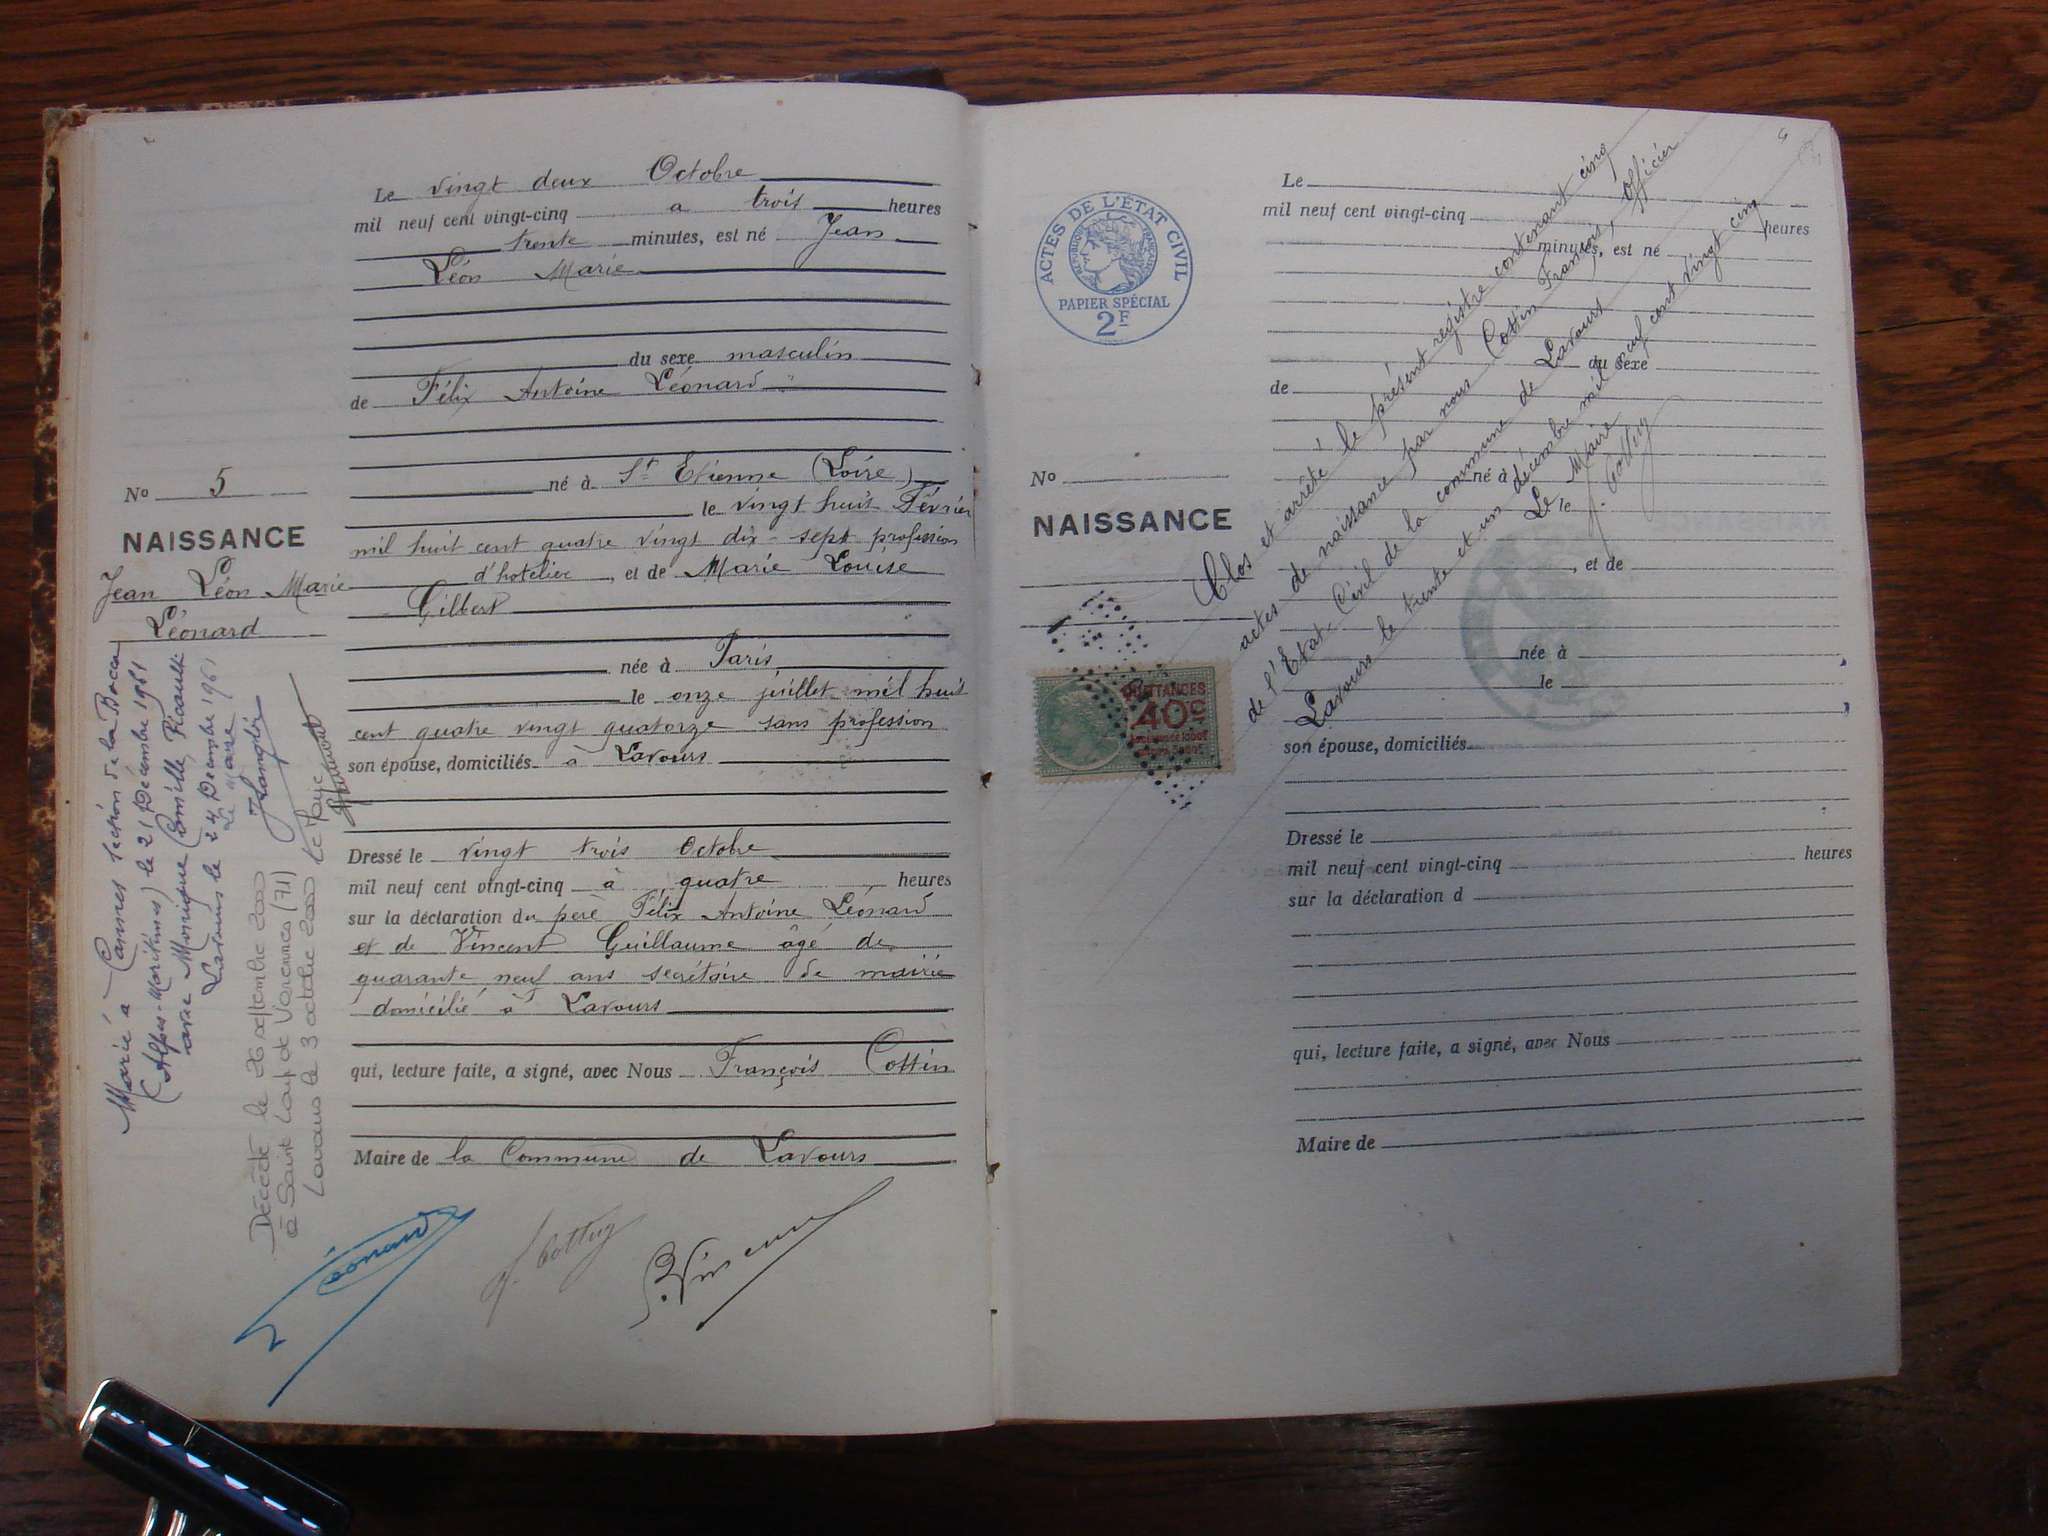 Le vingt deux Octobre
mil neuf cent vingt-cinq a trois heures
trente minutes, est né Jean
Léon Marie
du sexe masculin
de Félix Antoine Léonard
né à St Etienne (Loire)
le vingt huit Février
mil huit cent quatre vingt dix-sept profession
d'hotelier, et de Marie Louise
Gilbert
née à Paris
le onze juillet mil huit
cent quatre vingt quatorze sans profession
son épouse, domiciliés à Lavours
Dressé le vingt trois Octobre
mil neuf cent vingt-cinq à quatre heures
sur la déclaration du père Félix Antoine Léonard
et de Vincent Guillaume âgé de
quarante neuf ans secrétaire de mairie
domicilié à Lavours
qui, lecture faite, a signé, avec Nous François Cottin
Maire de la Commune de Lavours
Léonard
f. Cottin
G. Vincent
No 5
NAISSANCE
Jean Léon Marie
Léonard
Marié à Cannes section de la Bocca
(Alpes-Maritimes) le 21 Décembre 1961
avec Monique Camille
Lavours le 24 Decembre 1961
Le Maire
Décédé le 26 septembre 2000
à Saint Loup de Varennes (71)
Lavours le 3 octobre 2000
ACTES DE L'ÉTAT CIVIL
RÉPUBLIQUE FRANÇAISE
PAPIER SPÉCIAL
2F
Le
mil neuf cent vingt-cinq heures
minutes, est né
du sexe
de
né à
le
No
NAISSANCE
, et de
née à
le
son épouse, domiciliés
Dressé le
mil neuf cent vingt-cinq heures
sur la déclaration d
qui, lecture faite, a signé, avec Nous
Maire de
QUITTANCES
40c
Clos et arrêté le présent registre contenant cinq
actes de naissance par nous Cottin François, Officier
de l'Etat-Civil de la commune de Lavours
Lavours le trente et un décembre mil neuf cent vingt cinq
Le Maire
f. Cottin